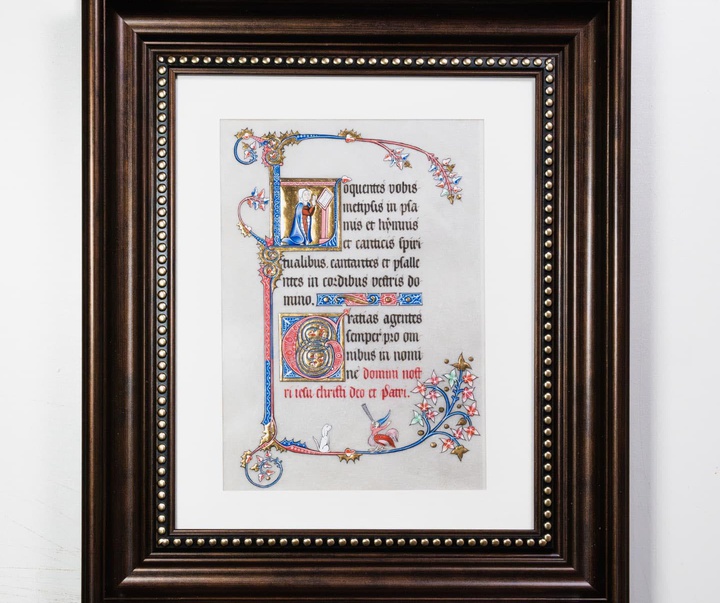 Loquentes vobis
metipsis in psa
mis et hymnis
et canticis spiri
tualibus, cantantes et psalle
ntes in cordibus vestris do
mino.
Gratias agentes
semper pro om
nibus in nomi
ne domini nost
ri iesu christi deo et patri.